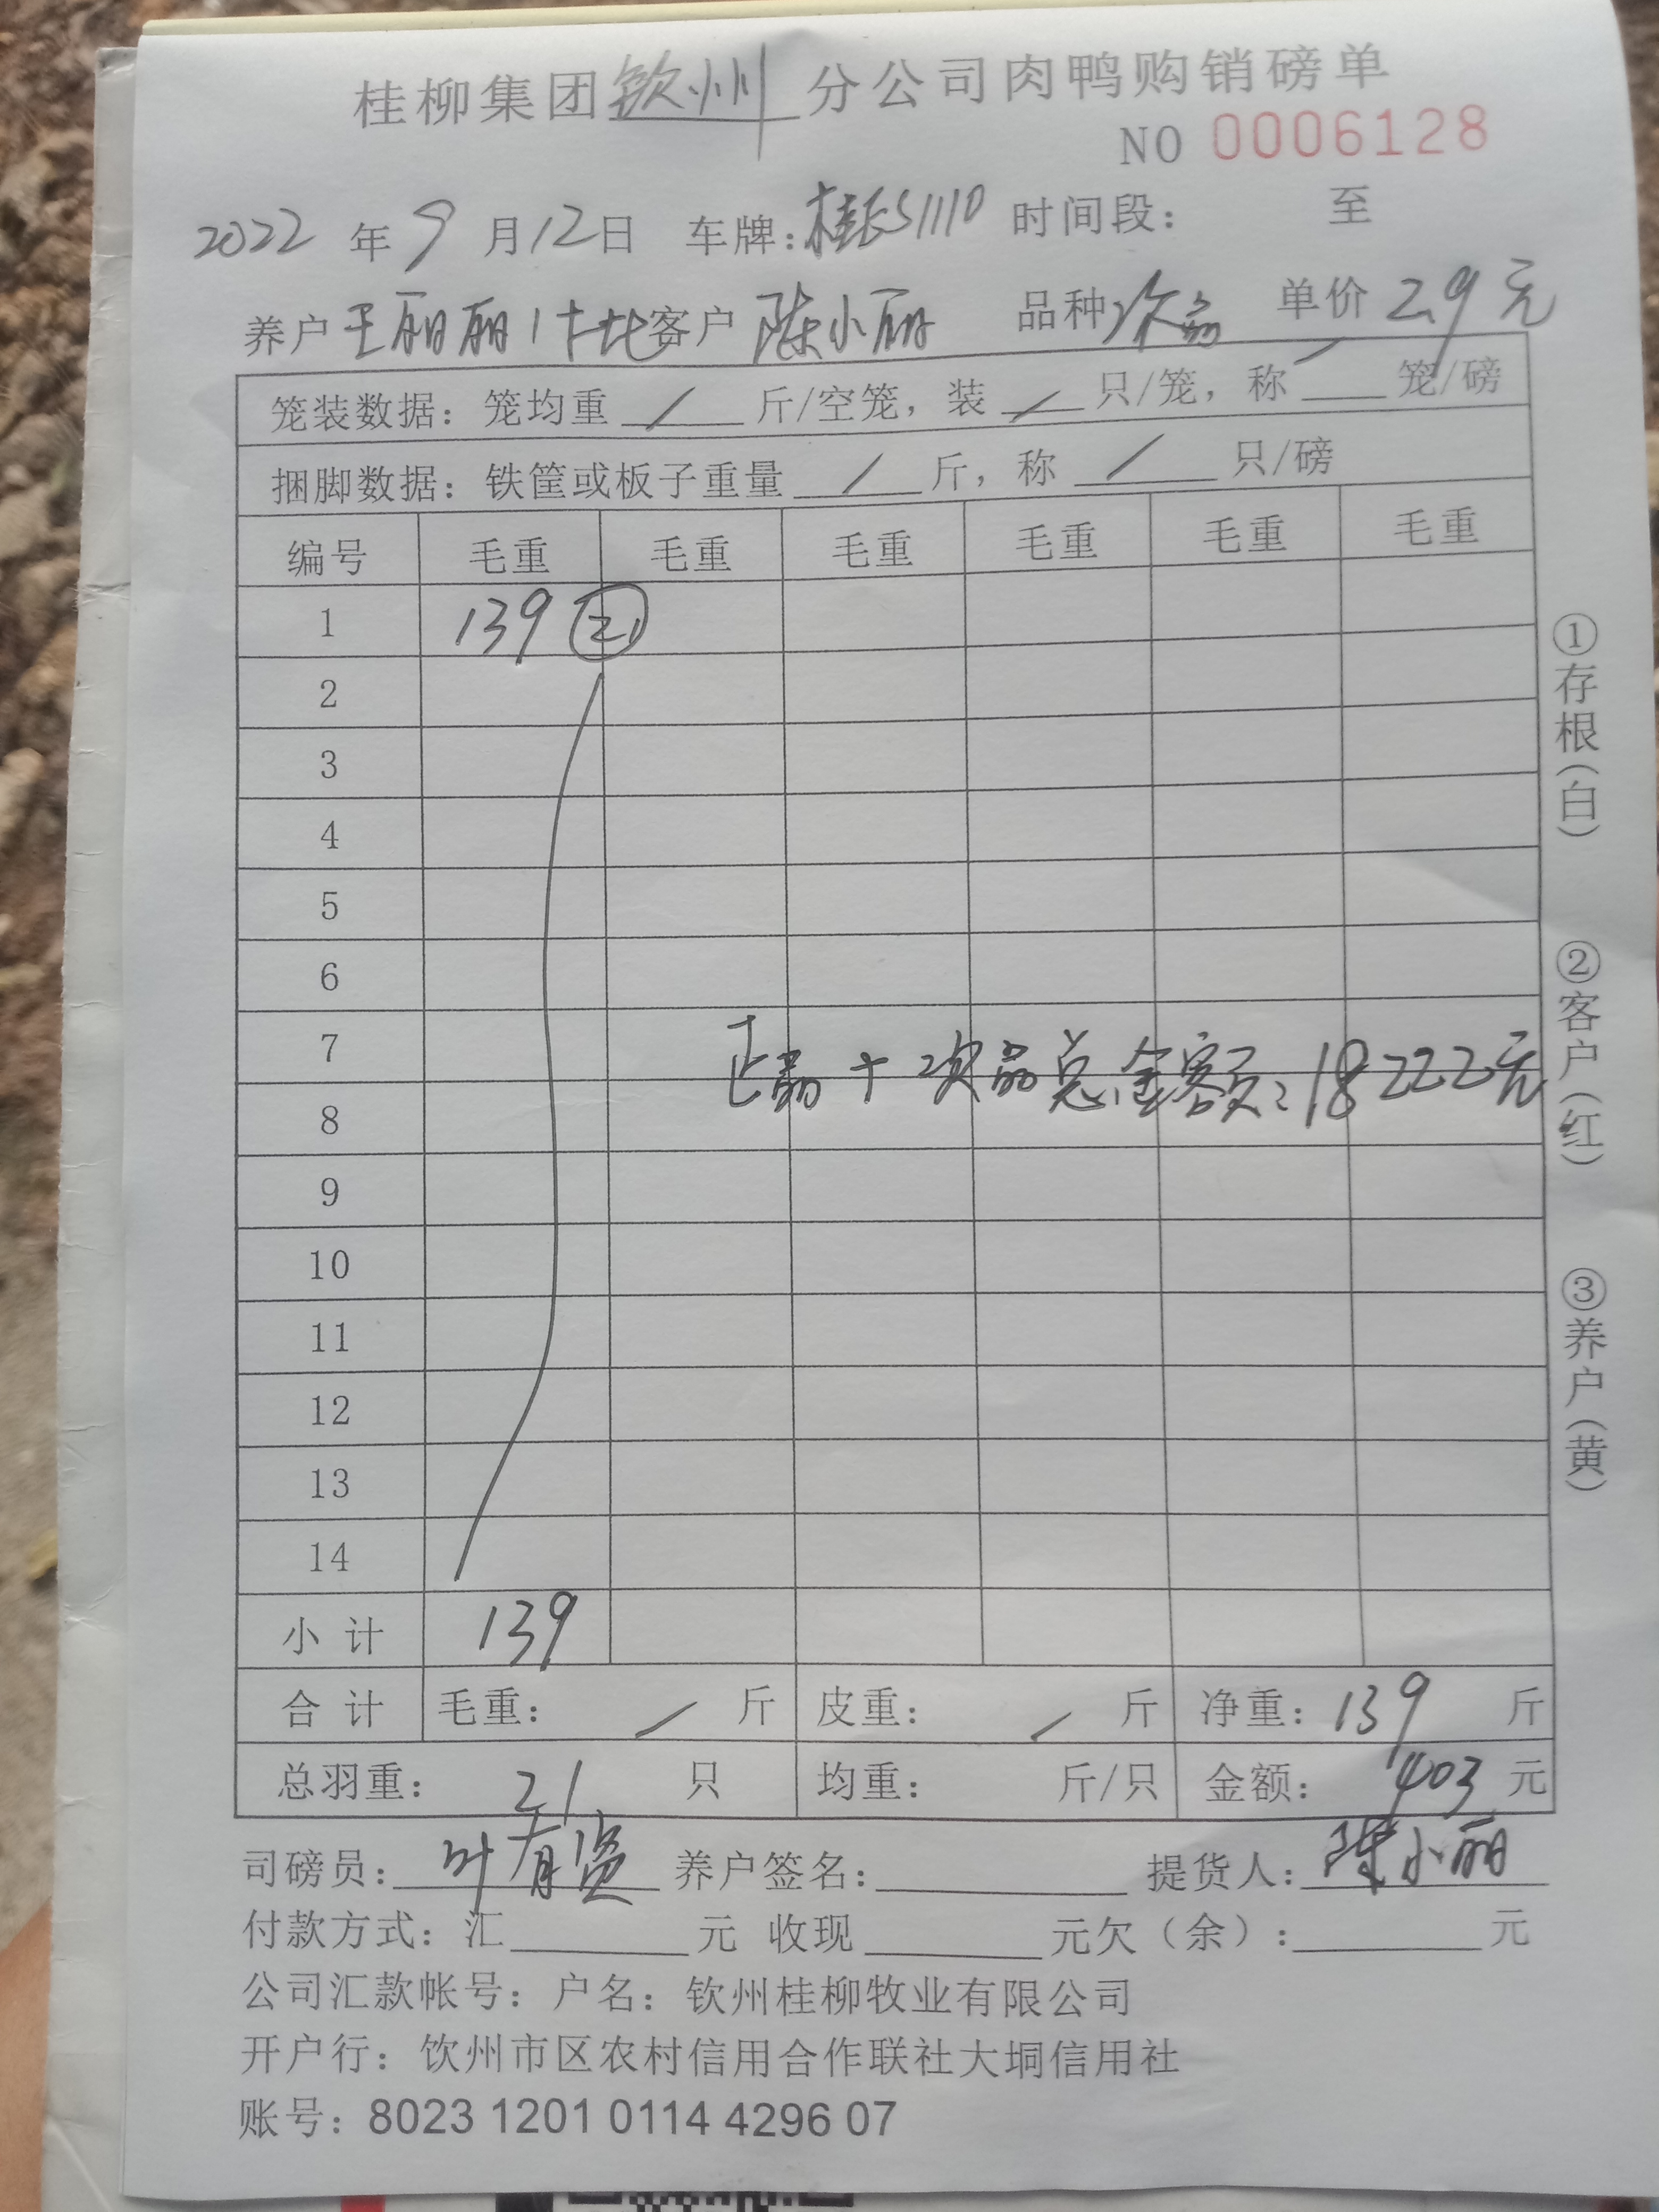 桂柳集团钦州分公司肉鸭购销磅单
NO 0006128
2022年9月12日 车牌:桂 时间段: 至
养户王丽丽 客户陈小丽 品种次品 单价2.9元
笼装数据:笼均重/斤/空笼,装/只/笼,称/笼/磅
捆脚数据:铁筐或板子重量/斤,称/只/磅
编号 毛重 毛重 毛重 毛重 毛重 毛重
1 139 21
2
3
4
5
6
7
正品+次品总金额:18222元
8
9
10
11
12
13
14
小计 139
合计 毛重: / 斤 皮重: / 斤 净重:139斤
总羽重:21只 均重: 斤/只 金额:403元
司磅员:叶有 养户签名: 提货人:陈小丽
付款方式:汇 元 收现 元欠(余): 元
公司汇款帐号:户名:钦州桂柳牧业有限公司
开户行:钦州市区农村信用合作联社大垌信用社
账号:8023 1201 0114 4296 07
①存根(白)
②客户(红)
③养户(黄)